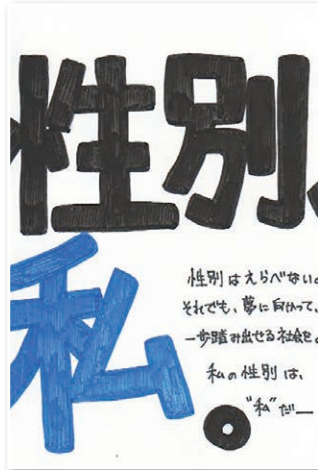 性別、
私。
性別はえらべない。
それでも、夢に向かって、
一歩踏み出せる社会を。
私の性別は、
"私"だ―